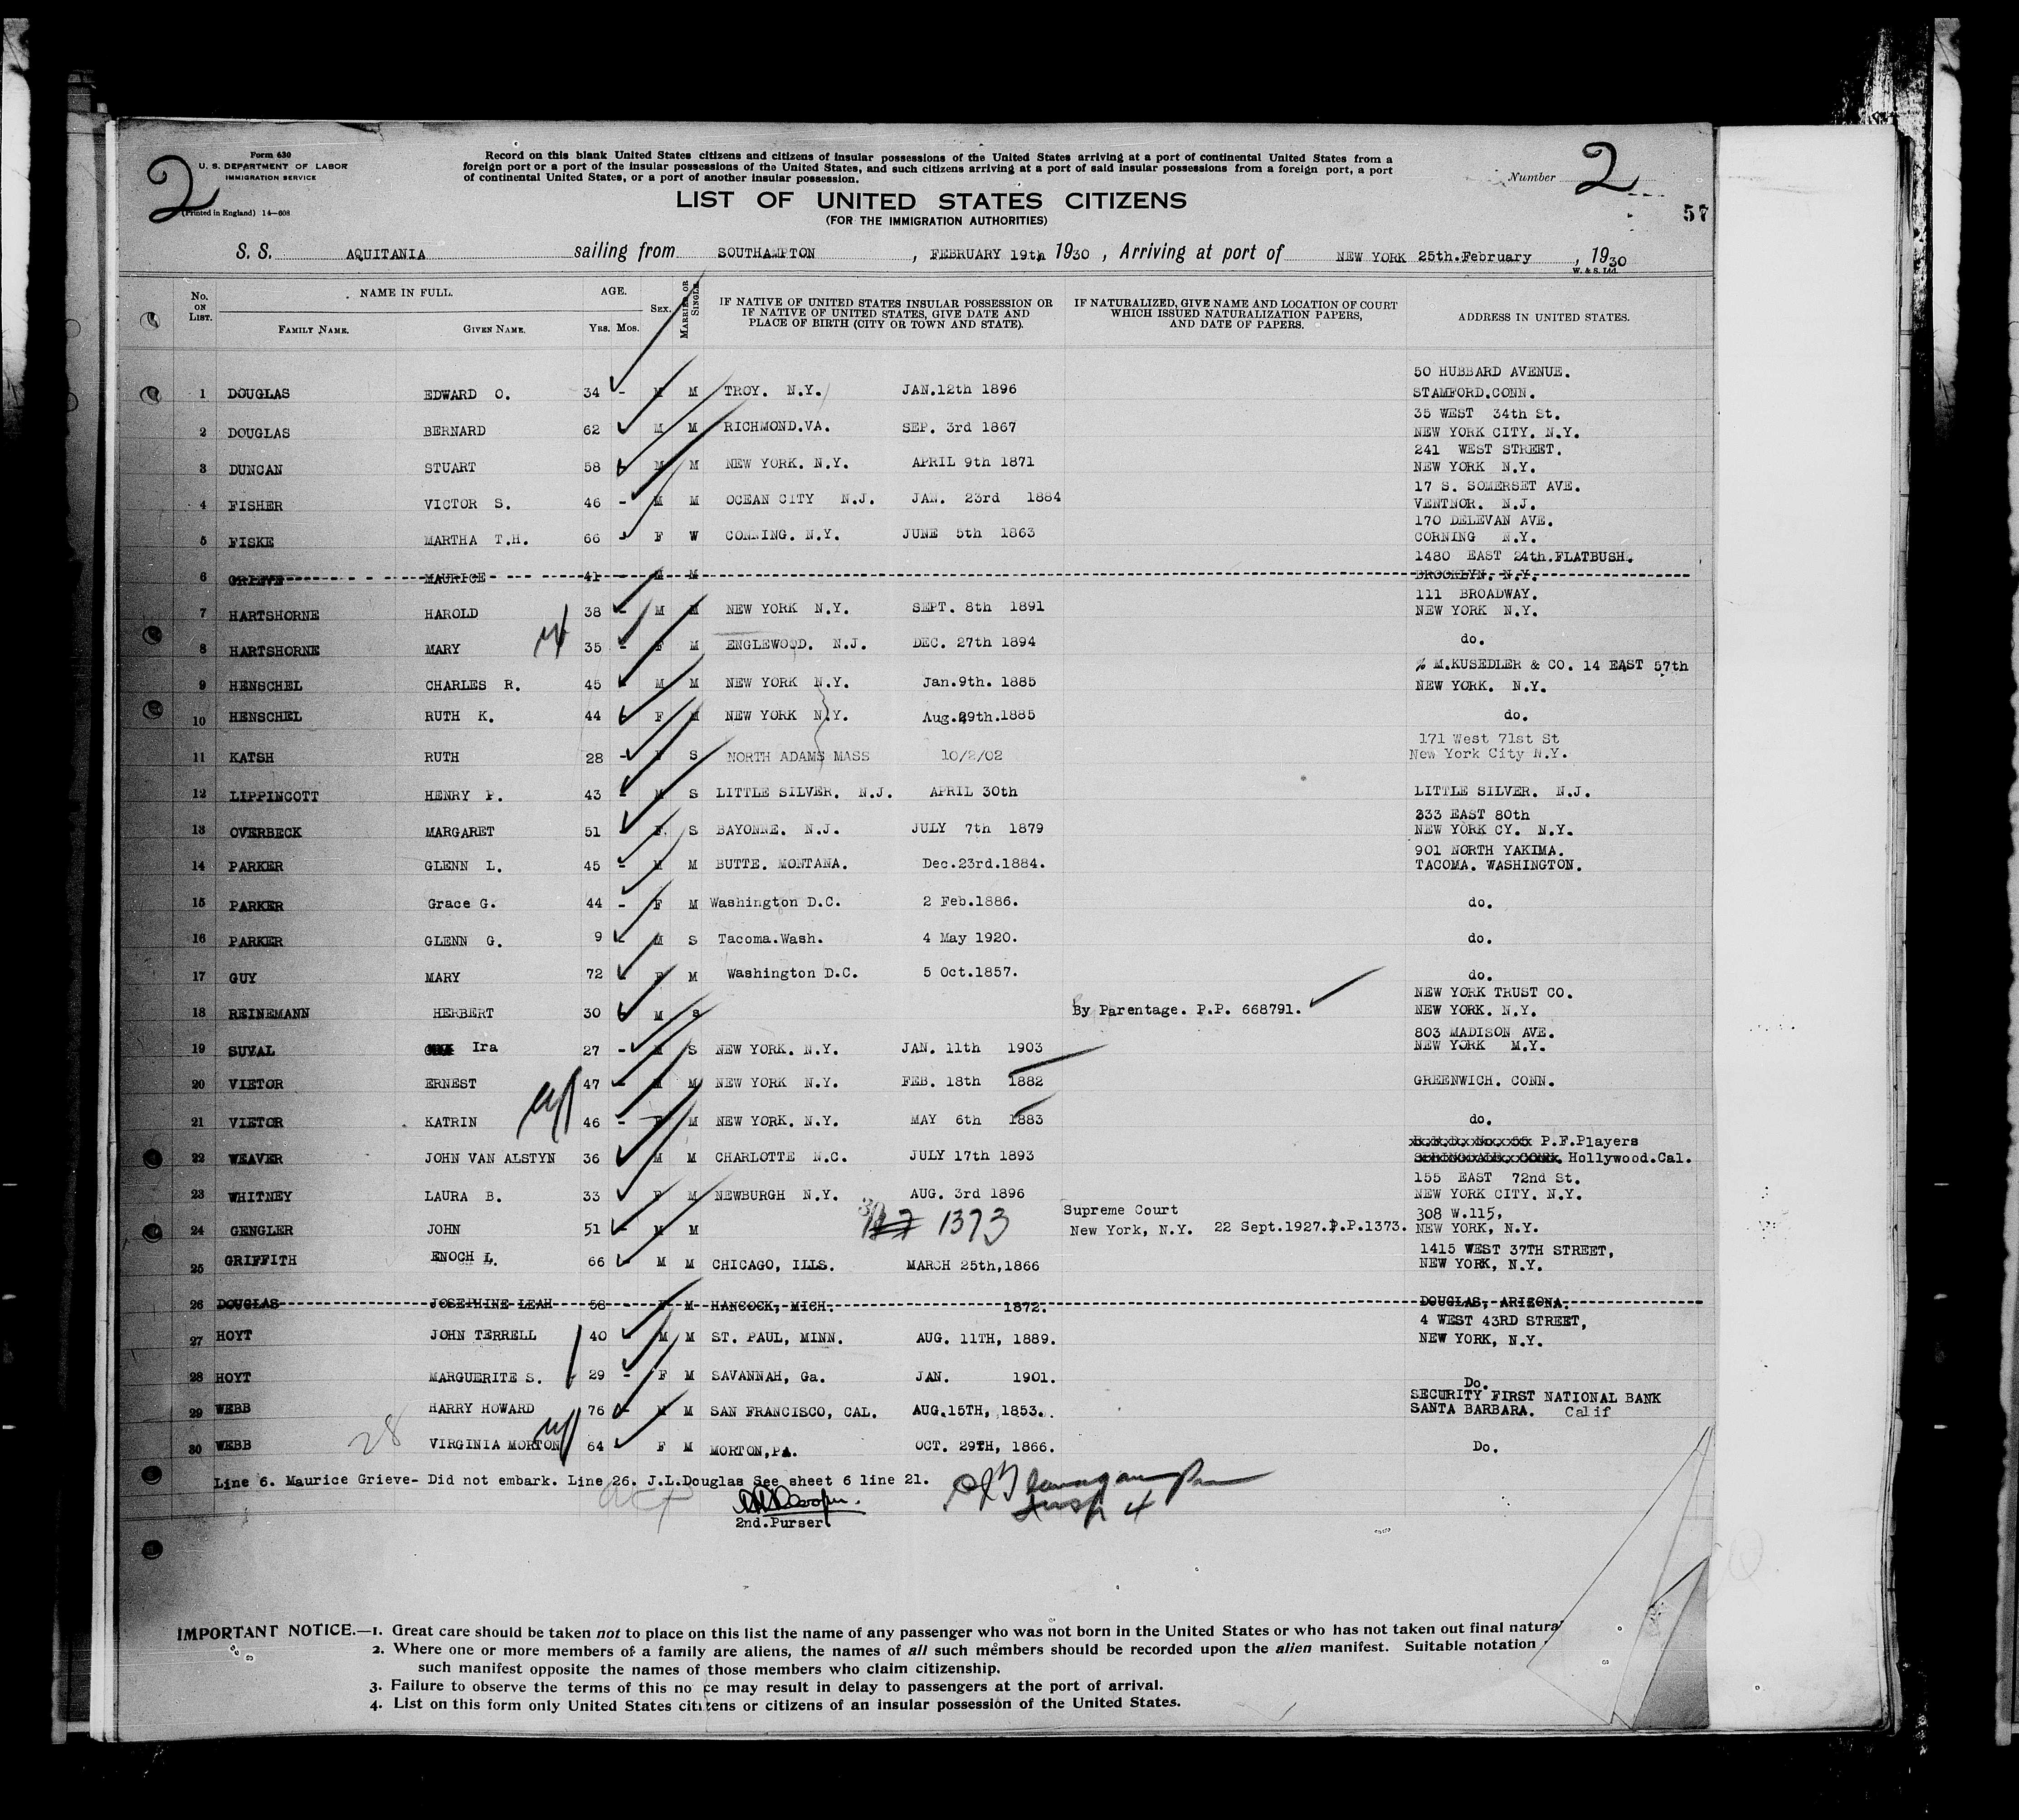 2
Form 630
U. S. DEPARTMENT OF LABOR
IMMIGRATION SERVICE
(Printed in England) 14—608
Record on this blank United States citizens and citizens of insular possessions of the United States arriving at a port of continental United States from a
foreign port or a port of the insular possessions of the United States, and such citizens arriving at a port of said insular possessions from a foreign port, a port
of continental United States, or a port of another insular possession.
LIST OF UNITED STATES CITIZENS
(FOR THE IMMIGRATION AUTHORITIES)
Number 2
57
S. S. AQUITANIA sailing from SOUTHAMPTON , FEBRUARY 19th 1930 , Arriving at port of NEW YORK 25th.February , 1930
W. & S. Ltd.
No. ON LIST. NAME IN FULL. FAMILY NAME. GIVEN NAME. AGE. YRS. MOS. SEX. MARRIED OR SINGLE. IF NATIVE OF UNITED STATES INSULAR POSSESSION OR IF NATIVE OF UNITED STATES, GIVE DATE AND PLACE OF BIRTH (CITY OR TOWN AND STATE). IF NATURALIZED, GIVE NAME AND LOCATION OF COURT WHICH ISSUED NATURALIZATION PAPERS, AND DATE OF PAPERS. ADDRESS IN UNITED STATES.
50 HUBBARD AVENUE.
1 DOUGLAS EDWARD O. 34 - M M TROY. N.Y. JAN.12th 1896 STAMFORD.CONN.
35 WEST 34th St.
2 DOUGLAS BERNARD 62 M M RICHMOND.VA. SEP. 3rd 1867 NEW YORK CITY. N.Y.
241 WEST STREET.
3 DUNCAN STUART 58 M M NEW YORK. N.Y. APRIL 9th 1871 NEW YORK N.Y.
17 S. SOMERSET AVE.
4 FISHER VICTOR S. 46 - M M OCEAN CITY N.J. JAN. 23rd 1884 VENTNOR. N.J.
170 DELEVAN AVE.
5 FISKE MARTHA T.H. 66 - F W CONNING. N.Y. JUNE 5th 1863 CORNING N.Y.
1480 EAST 24th.FLATBUSH.
6 GRIEVE MAURICE 41 - M M BROOKLYN. N.Y.
111 BROADWAY.
7 HARTSHORNE HAROLD 38 - M M NEW YORK N.Y. SEPT. 8th 1891 NEW YORK N.Y.
8 HARTSHORNE MARY 35 - F M ENGLEWOOD. N.J. DEC. 27th 1894 do.
% M.KUSEDLER & CO. 14 EAST 57th
9 HENSCHEL CHARLES R. 45 M M NEW YORK N.Y. Jan.9th. 1885 NEW YORK. N.Y.
10 HENSCHEL RUTH K. 44 F M NEW YORK N.Y. Aug.29th.1885 do.
171 West 71st St
11 KATSH RUTH 28 - F S NORTH ADAMS MASS 10/2/02 New York City N.Y.
12 LIPPINCOTT HENRY P. 43 - M S LITTLE SILVER. N.J. APRIL 30th LITTLE SILVER. N.J.
233 EAST 80th
13 OVERBECK MARGARET 51 F. S BAYONNE. N.J. JULY 7th 1879 NEW YORK CY. N.Y.
901 NORTH YAKIMA.
14 PARKER GLENN L. 45 - M M BUTTE. MONTANA. Dec.23rd.1884. TACOMA. WASHINGTON.
15 PARKER Grace G. 44 - F M Washington D.C. 2 Feb.1886. do.
16 PARKER GLENN G. 9 - M S Tacoma.Wash. 4 May 1920. do.
17 GUY MARY 72 - F M Washington D.C. 5 Oct.1857. do.
NEW YORK TRUST CO.
18 REINEMANN HERBERT 30 M S By Parentage. P.P. 668791. NEW YORK. N.Y.
803 MADISON AVE.
19 SUVAL Ira 27 - M S NEW YORK. N.Y. JAN. 11th 1903 NEW YORK M.Y.
20 VIETOR ERNEST 47 - M M NEW YORK N.Y. FEB. 18th 1882 GREENWICH. CONN.
21 VIETOR KATRIN 46 - F M NEW YORK. N.Y. MAY 6th 1883 do.
P.F.Players
22 WEAVER JOHN VAN ALSTYN 36 M M CHARLOTTE N.C. JULY 17th 1893 Hollywood.Cal.
155 EAST 72nd St.
23 WHITNEY LAURA B. 33 F M NEWBURGH N.Y. AUG. 3rd 1896 NEW YORK CITY. N.Y.
1373 Supreme Court 308 W.115,
24 GENGLER JOHN 51 - M M New York, N.Y. 22 Sept.1927.P.P.1373. NEW YORK, N.Y.
1415 WEST 37TH STREET,
25 GRIFFITH ENOCH L. 66 M M CHICAGO, ILLS. MARCH 25th,1866 NEW YORK, N.Y.
26 DOUGLAS JOSEPHINE LEAH 58 - F M HANCOCK, MICH. 1872. DOUGLAS, ARIZONA.
4 WEST 43RD STREET,
27 HOYT JOHN TERRELL 40 - M M ST. PAUL, MINN. AUG. 11TH, 1889. NEW YORK, N.Y.
28 HOYT MARGUERITE S. 29 - F M SAVANNAH, Ga. JAN. 1901. Do.
SECURITY FIRST NATIONAL BANK
29 WEBB HARRY HOWARD 76 - M M SAN FRANCISCO, CAL. AUG.15TH, 1853. SANTA BARBARA. Calif
30 WEBB VIRGINIA MORTON 64 F M MORTON,PA. OCT. 29TH, 1866. Do.
28
Line 6. Maurice Grieve- Did not embark. Line 26. J.L.Douglas See sheet 6 line 21.
2nd.Purser.
IMPORTANT NOTICE.—1. Great care should be taken not to place on this list the name of any passenger who was not born in the United States or who has not taken out final natura
2. Where one or more members of a family are aliens, the names of all such members should be recorded upon the alien manifest. Suitable notation
such manifest opposite the names of those members who claim citizenship.
3. Failure to observe the terms of this no ce may result in delay to passengers at the port of arrival.
4. List on this form only United States citizens or citizens of an insular possession of the United States.